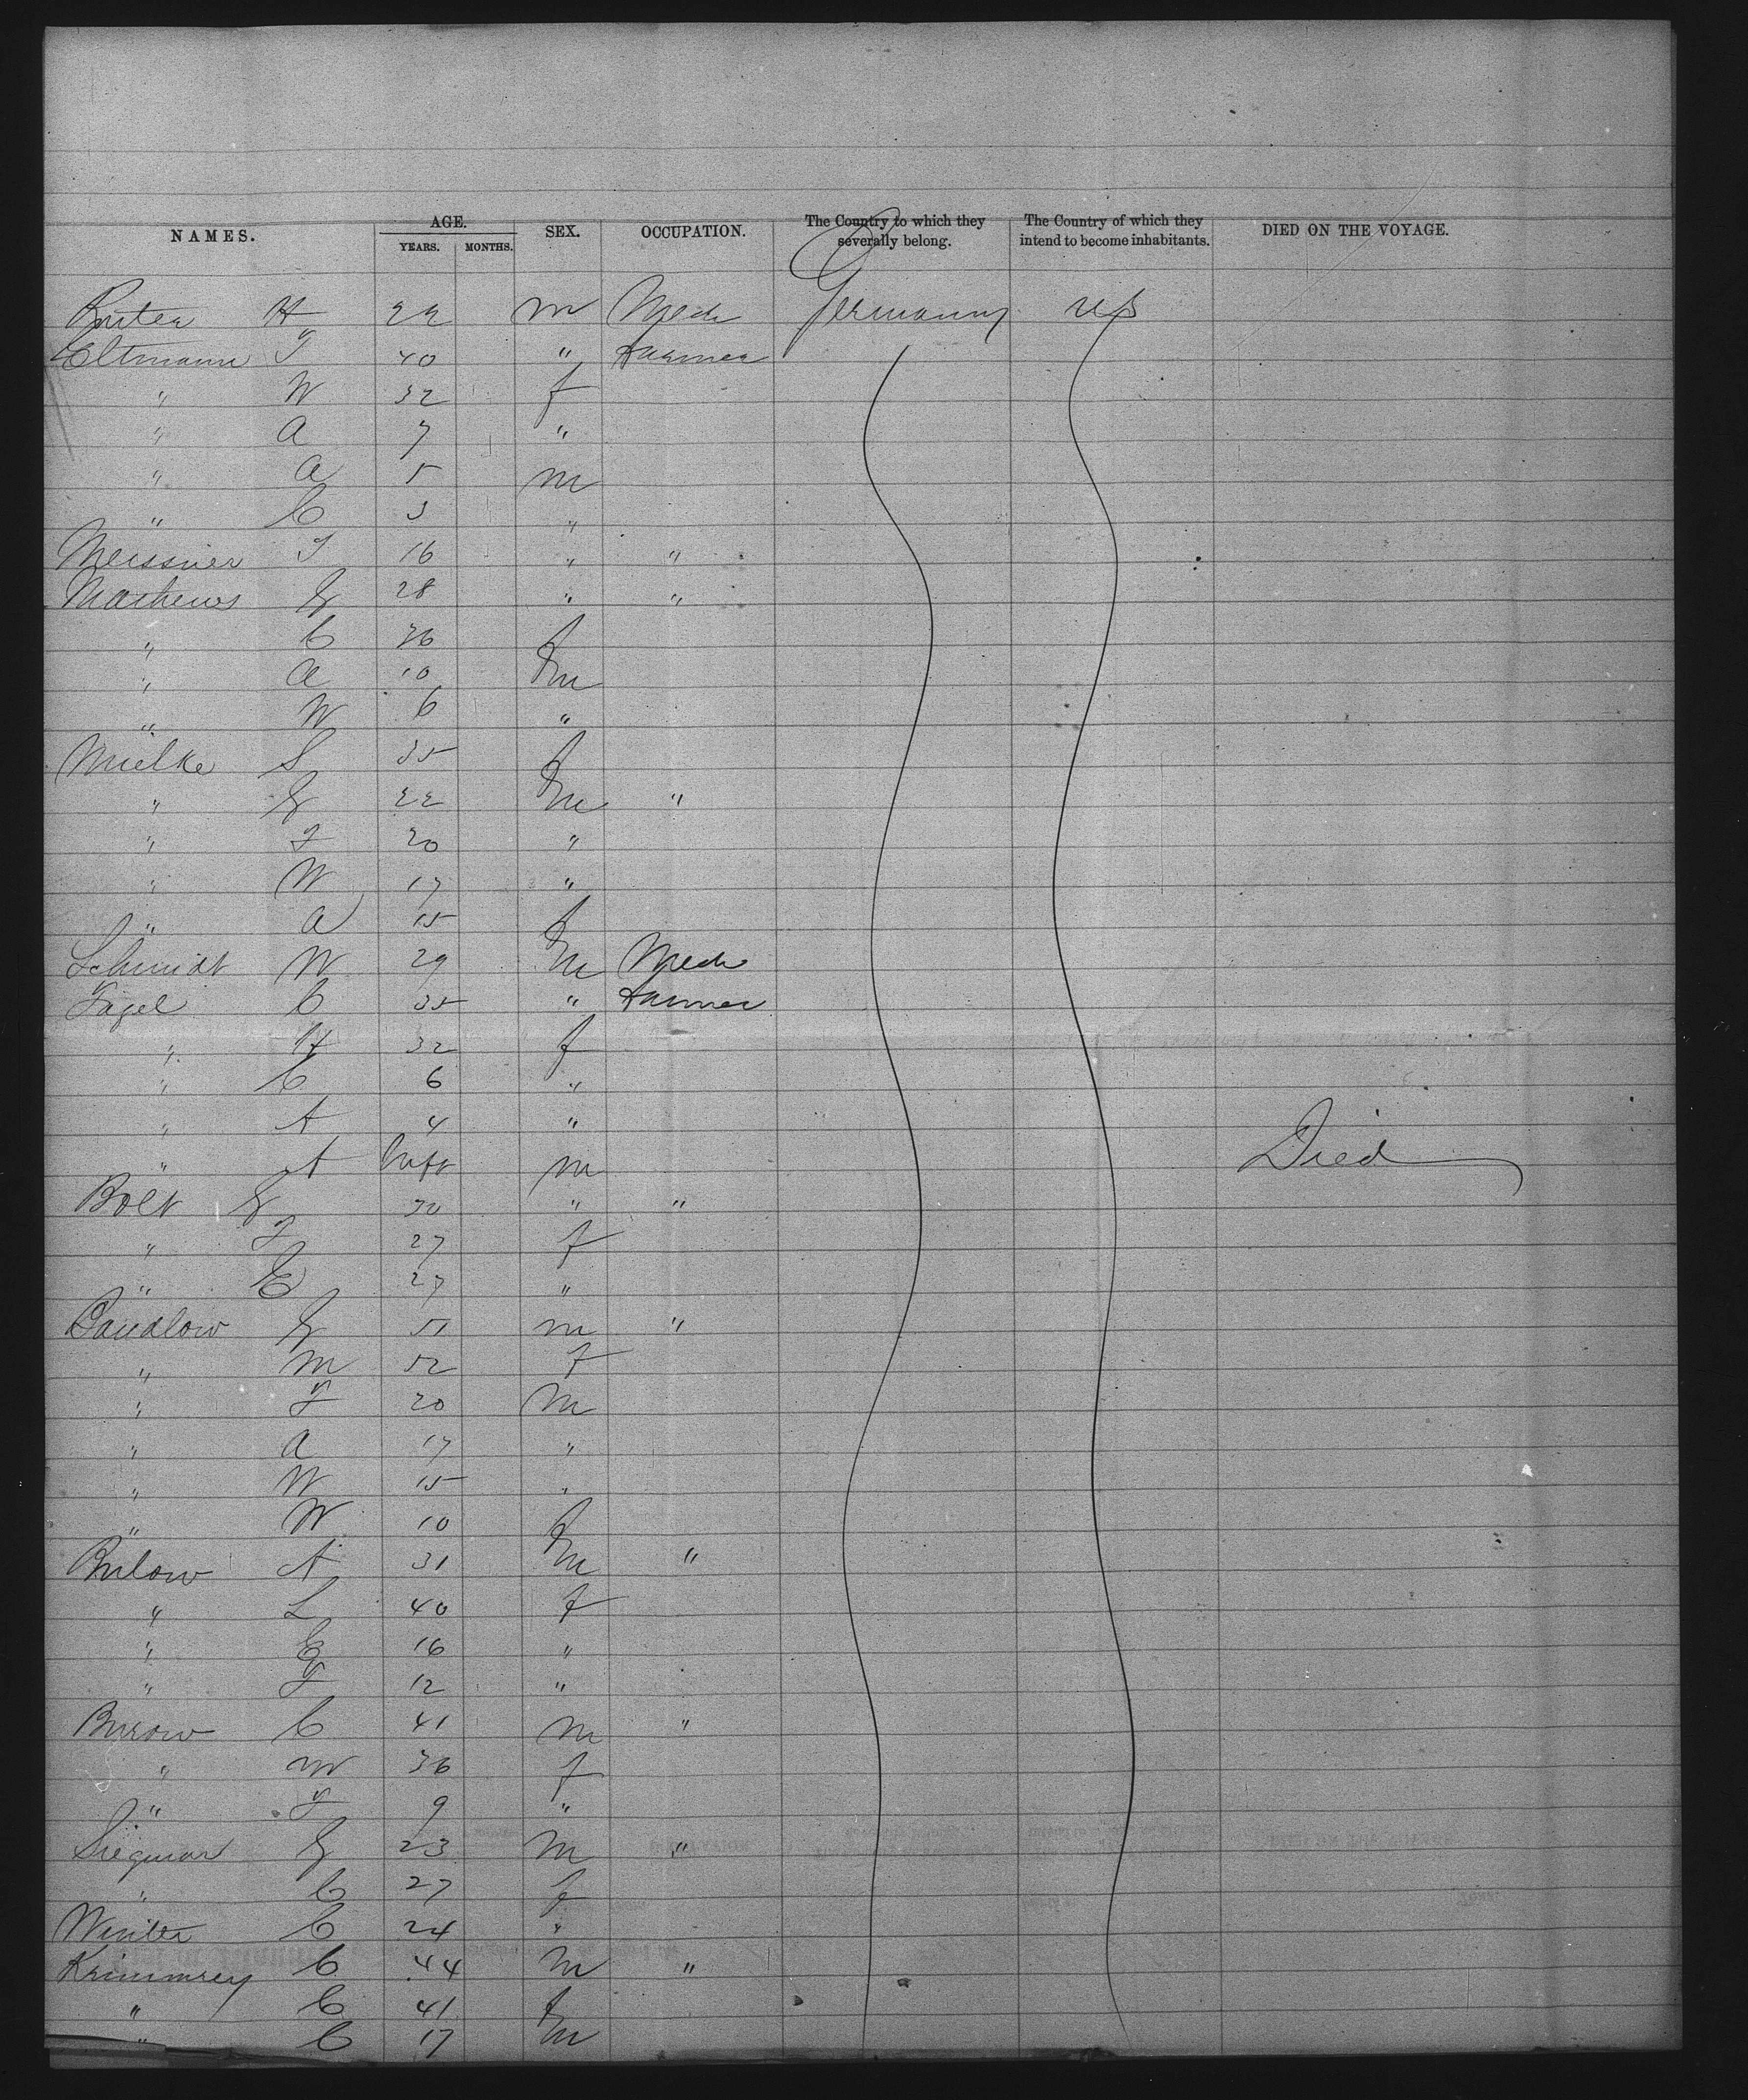 NAMES. AGE. YEARS. MONTHS. SEX. OCCUPATION. The Country to which they severally belong. The Country of which they intend to become inhabitants. DIED ON THE VOYAGE.
H 22 m Mech Germany US
Eltmann J 40 " Farmer
" W 32 f
" A 7 "
" A 5 m
" C 3 "
Meissner J 16 " "
Mathews G 28 " "
" C 36 f
" A 10 m
" W 6 "
Mielke S 35 f
" G 22 m "
" F 20 "
" W 17 "
" A 15 f
Schmidt W 29 m Mech
C 35 " Farmer
" H 32 f
" C 6 "
" A 4 "
" A Inft m Died
Bolt G 30 " "
" F 27 f
" E 27 "
G 51 m "
" M 52 f
" F 20 m
" A 17 "
" W 15 "
" W 10 f
Bulow A 31 m "
" L 40 f
" E 16 "
" F 12 "
Burow C 41 m "
" W 36 f
" F 9 "
G 23 m "
" C 27 f
Winter C 24 "
Krimmrey C 44 m "
" C 41 f
" C 17 m